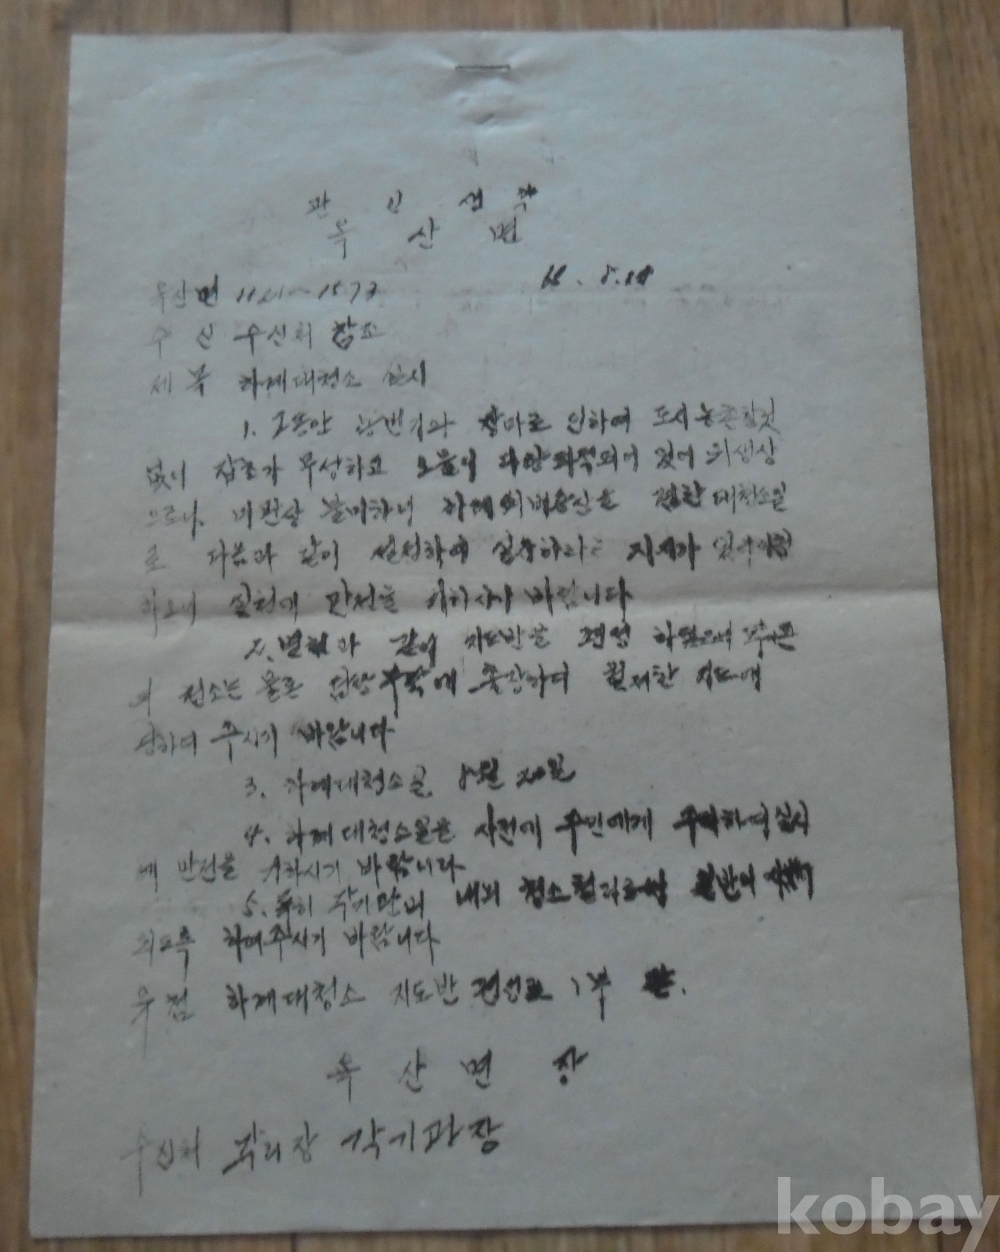 관 인 생략
옥 산 면
옥산면 11.
수신 수신처 참조
제목 하계대청소 실시
1. 그동안 농번기와 장마로 인하여 도시 농촌 할것
없이 잡초가 무성하고 오물이 다량 퇴적되어 있어 위생상
으로나 미관상 불미하니 하계의 대청소일
로 다음과 같이 설정하여 실시하라는 지시가
하오니 실천에 만전을 기하시기 바랍니다
2. 별첨과 같이 지도반을 편성 하였으며
의 청소는 물론 담당 부락에 출장하여 철저한 지도에
당하여 주시기 바랍니다
3. 하계대청소일 8월 20일
4. 하계대청소일을 사전에 주민에게 하여 실시
에 만전을 기하시기 바랍니다
5. 특히 내의 청소
되도록 하여주시기 바랍니다
유첨 하계대청소 지도반 편성표 1부 끝.
옥 산 면 장
수신처 각리장 각기관장
kobay